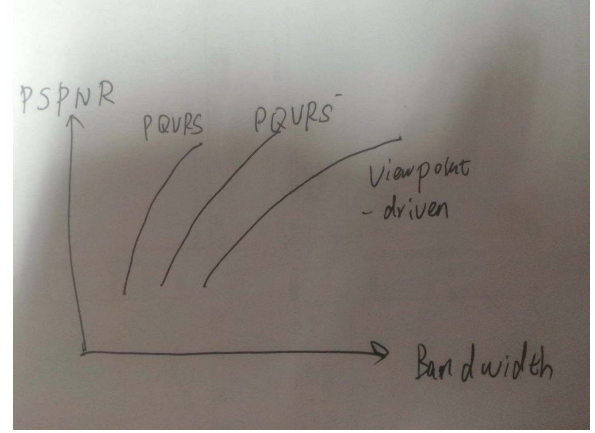 PSPNR
PQVRS
PQVRS⁻
Viewpoint
- driven
Bandwidth